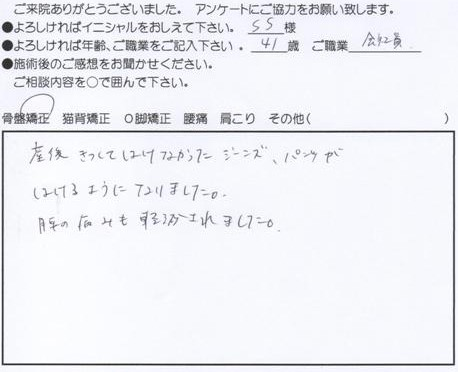 ご来院ありがとうございました。 アンケートにご協力をお願い致します。
●よろしければイニシャルをおしえて下さい。 SS 様
●よろしければ年齢、ご職業をご記入下さい。 41 歳 ご職業 会社員
●施術後のご感想をお聞かせください。
ご相談内容を○で囲んで下さい。
骨盤矯正 猫背矯正 O脚矯正 腰痛 肩こり その他( )
産後きつくてはけなかったジーンズ、パンツが
はけるようになりました。
腰の痛みも軽減されました。